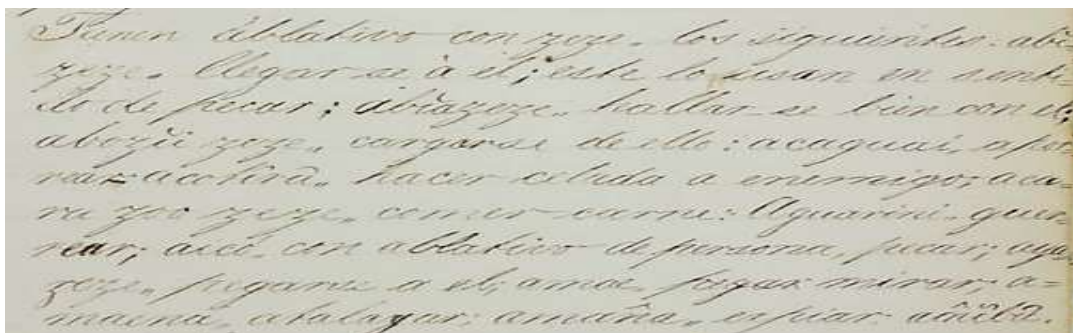 Tienen ablativo con zeze. los siguientes. abi-
zeze. llegar-se à el; este lo usan en senti-
do de pecar; abiazeze. hallar-se bien con el;
abozii zeze. cargarse de ello: acaguai, apor-
rear: acotirâ. hacer celada a enemigo; aca-
ra zoo zeze. comer carne: Aguarini. guer-
rear; aico. con ablativo de persona, pecar; aya-
zeze. pegarse a el; amae. mirar; a-
maena, atalayar; amaña. espiar